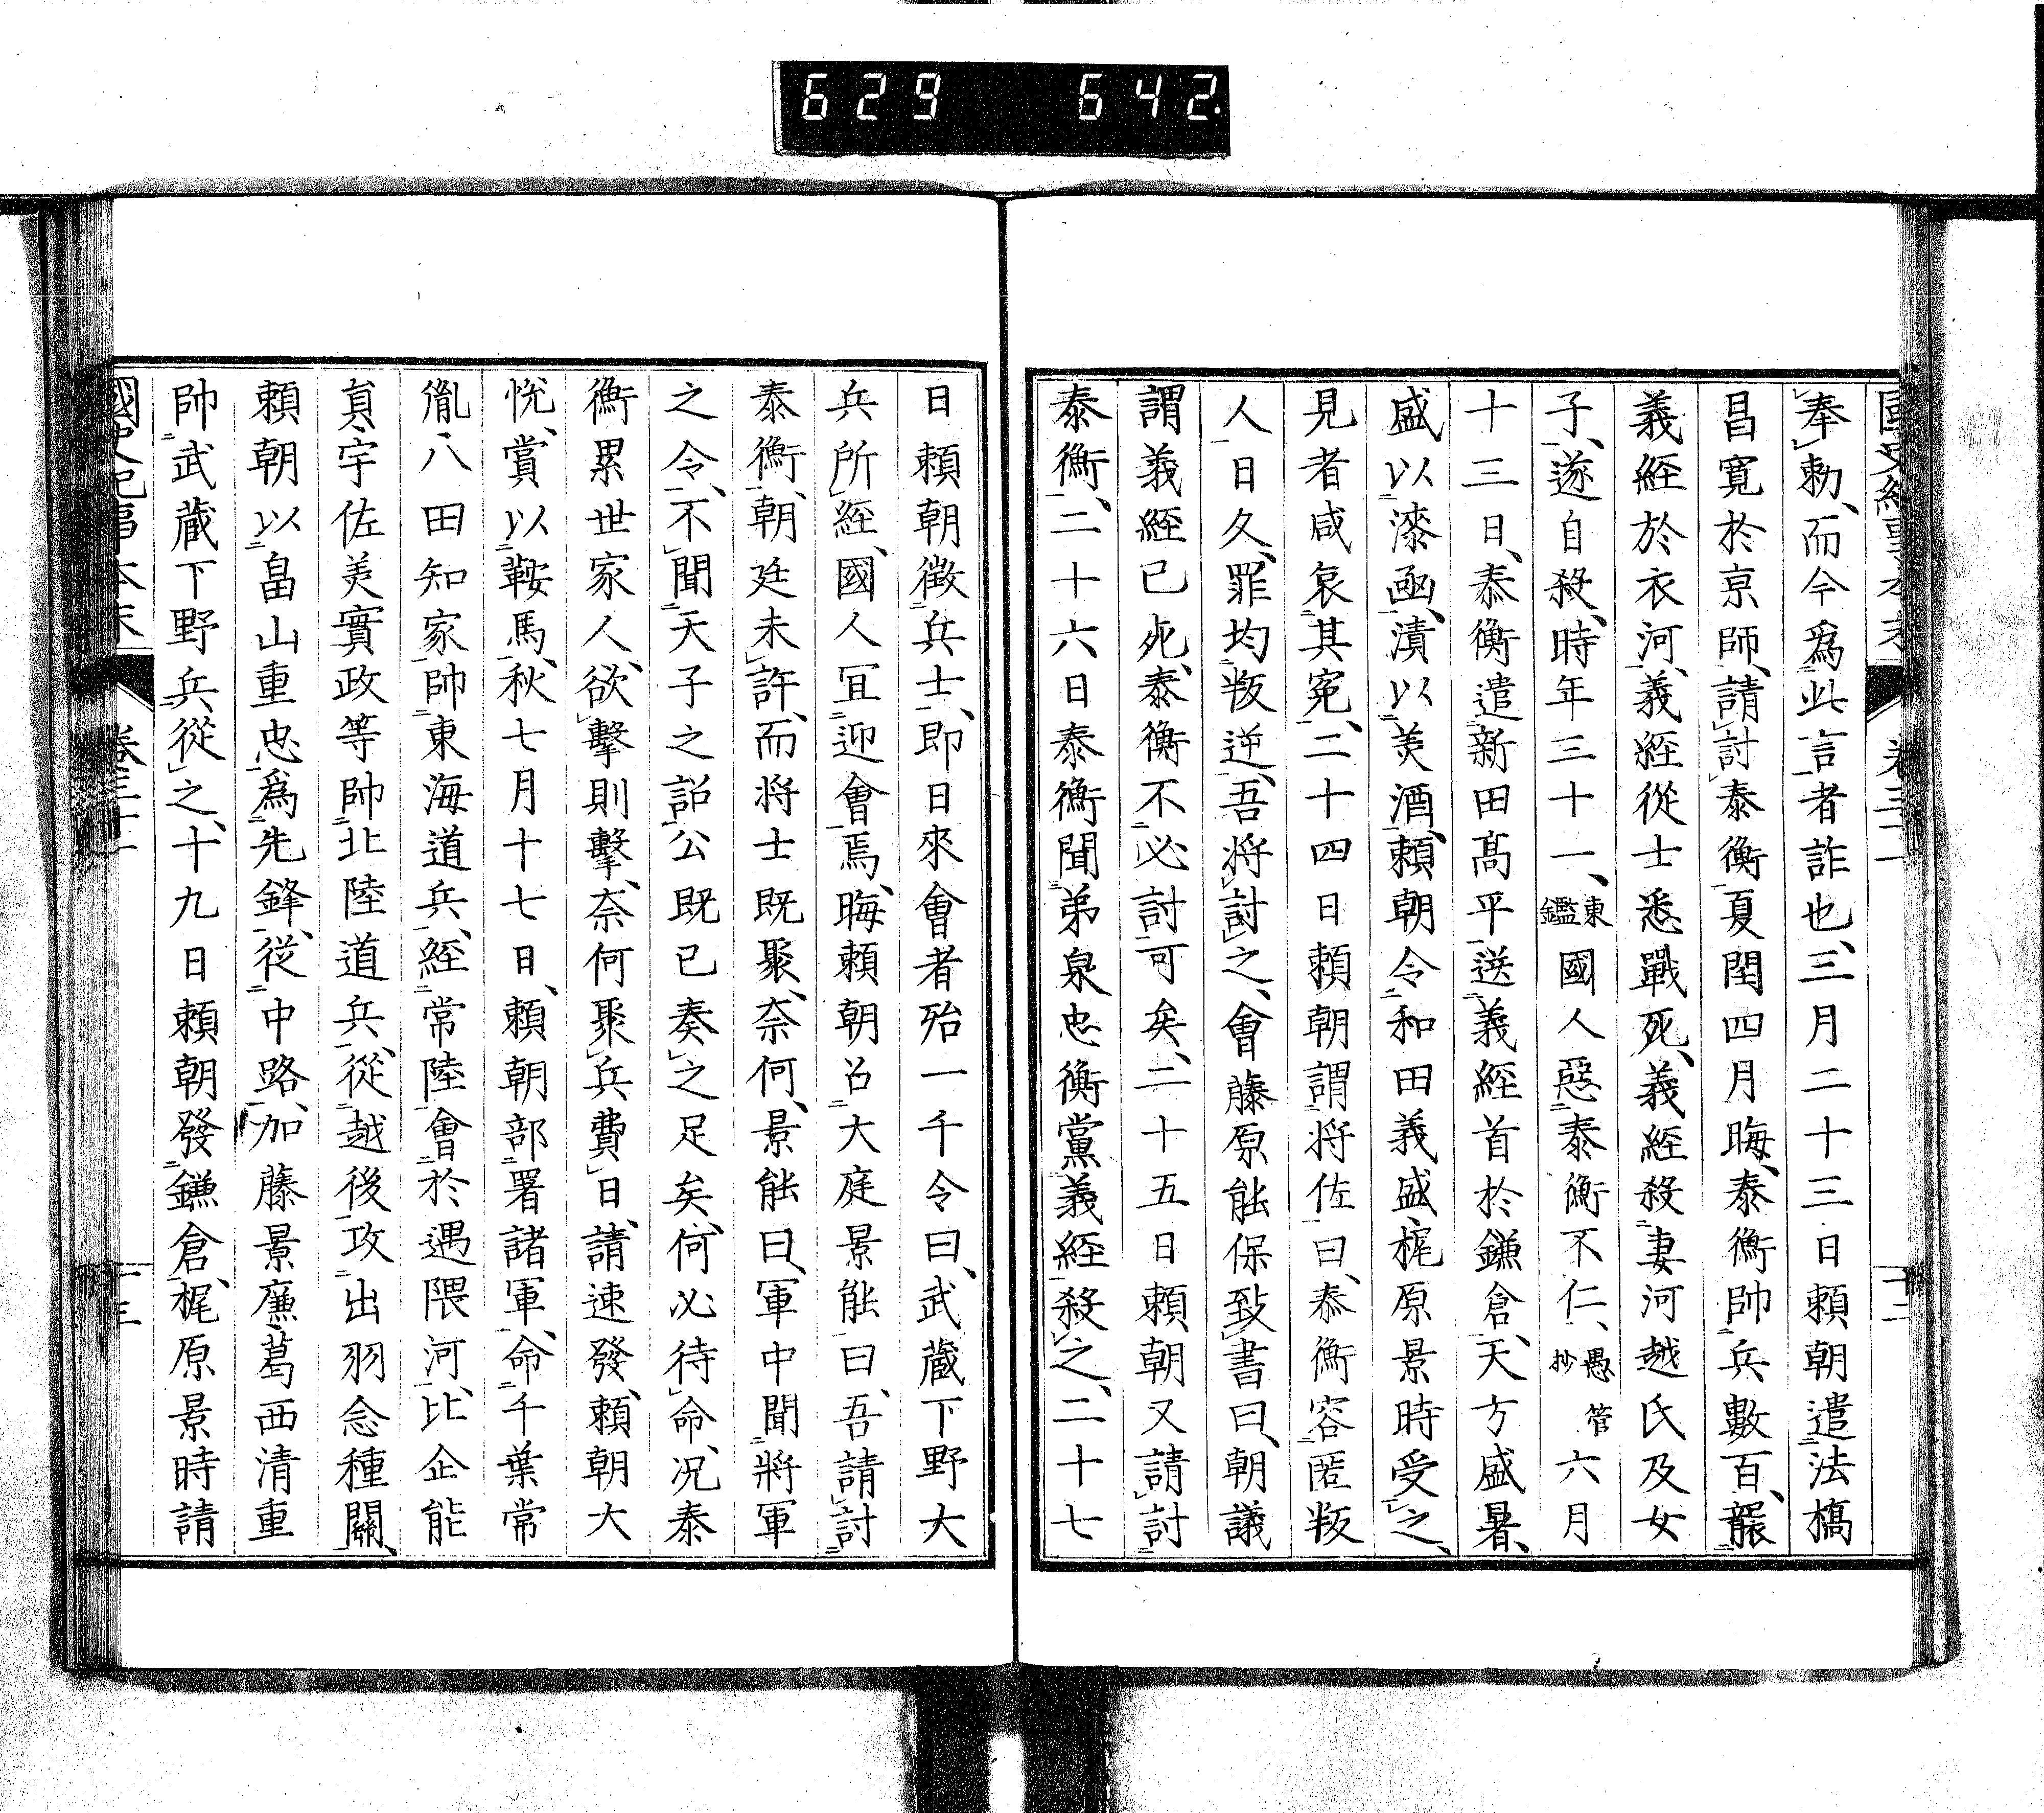 629 642.
奉勅、而今爲此言者詐也、三月二十三日賴朝遣法橋
昌寬於京師、請討泰衡、夏閏四月晦、泰衡帥兵數百、襲
義經於衣河、義經從士悉戰死、義經殺妻河越氏及女
子、遂自殺、時年三十一、東鑑國人惡泰衡不仁、愚管抄六月
十三日、泰衡遣新田高平送義經首於鎌倉、天方盛暑、
盛以漆函、漬以美酒、賴朝令和田義盛、梶原景時受之、
見者咸哀其冤、二十四日賴朝謂將佐曰、泰衡容匿叛
人日久、罪均叛逆、吾將討之、會藤原能保致書曰、朝議
謂義經已死、泰衡不必討可矣、二十五日賴朝又請討
泰衡、二十六日泰衡聞弟泉忠衡黨義經殺之、二十七
日賴朝徵兵士、卽日來會者殆一千、令曰、武藏下野大
兵所經、國人宜迎會焉、晦賴朝召大庭景能曰、吾請討
泰衡、朝廷未許、而將士既聚、奈何、景能曰、軍中聞將軍
之令、不聞天子之詔、公既已奏之足矣、何必待命、況泰
衡累世家人、欲擊則擊、奈何聚兵費日、請速發、賴朝大
悅、賞以鞍馬、秋七月十七日、賴朝部署諸軍、命千葉常
胤、八田知家帥東海道兵、經常陸會於遇隈河、比企能
員、宇佐美實政等帥北陸道兵、從越後攻出羽念種關、
賴朝以畠山重忠爲先鋒、從中路、加藤景廉、葛西清重
帥武藏下野兵從之、十九日賴朝發鎌倉、梶原景時請
國史紀事本末 卷三十一 十三